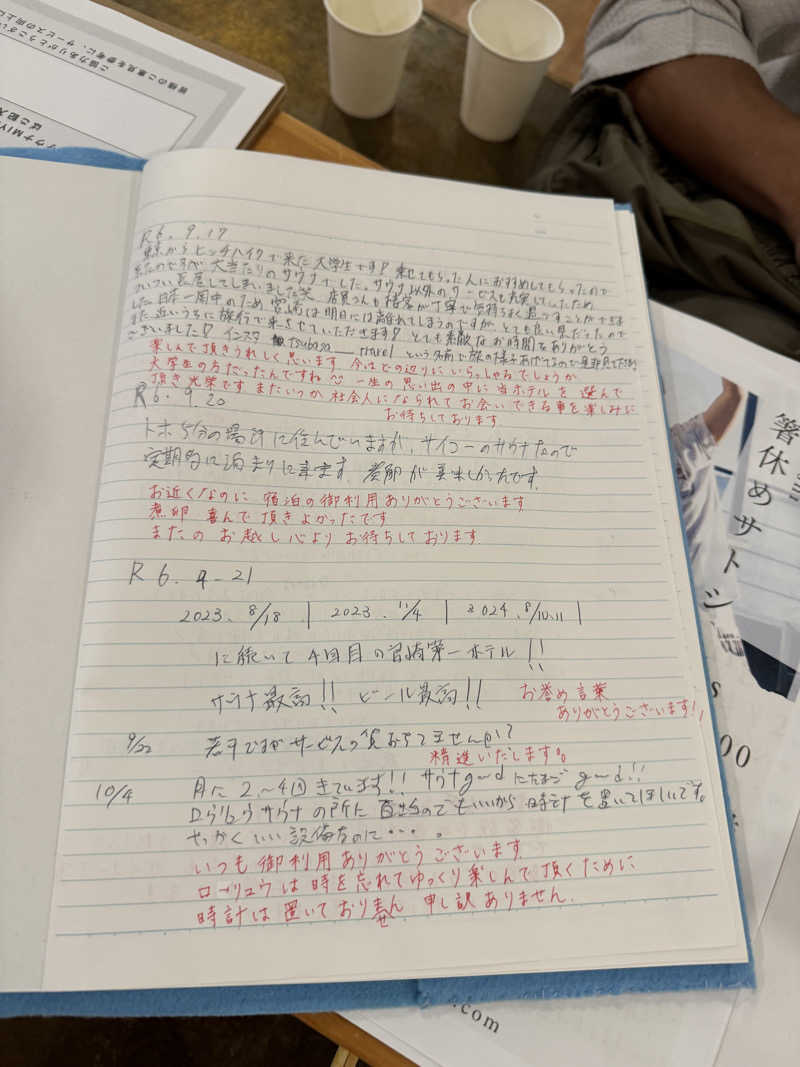 R6.9.17
東京からヒッチハイクで来た大学生です! 乗せてもらった人におすすめしてもらったので
来たのですが大当たりのサウナでした。サウナ以外のサービスも充実していたため
ついつい長居してしまいました笑 店員さんも接客が丁寧で気持ちよく過ごすことができま
した 日本一周中のため宮崎は明日には離れてしまうのですが、とても良い県だったので
また近いうちに旅行で来させていただきます! とても素敵なお時間をありがとう
ございました! インスタ tsubasa__travel という名前で旅の様子あげてるので是非見てください
楽しんで頂きうれしく思います 今はどの辺りにいらっしゃるでしょうか
大学生の方だったんですね 一生の思い出の中に当ホテルを選んで
頂き光栄です またいつか社会人になられてお会いできる事を楽しみに
お待ちしております
R6.9.20
トホ5分の場所に住んでいますが、サイコーのサウナなので
定期的に泊まりに来ます。煮卵が美味しかったです。
お近くなのに 宿泊の御利用ありがとうございます
煮卵 喜んで頂きよかったです
またの お越し心よりお待ちしております。
R6.9-21
2023.8/18 | 2023.11/4 | 2024.8/10.11 |
に続いて 4回目の宮崎第一ホテル!!
サウナ最高!! ビール最高!!
お誉め言葉
ありがとうございます!,
9/22 若干ですがサービスの質おちてませんか?
精進いたします。
10/4 月に2〜4回きています!! サウナgood にたまごgood!!
ロウリュウサウナの所に 百均のでもいいから 時計を置いてほしいです。
せっかくいい設備なのに・・・。
いつも御利用ありがとうございます。
ローリュウは時を忘れてゆっくり楽しんで頂くために
時計は置いておりません 申し訳ありません。
ご協力ありがとうござい
皆様のご意見を参考に、サービスの向上に
箸休めサトシ
00
.com